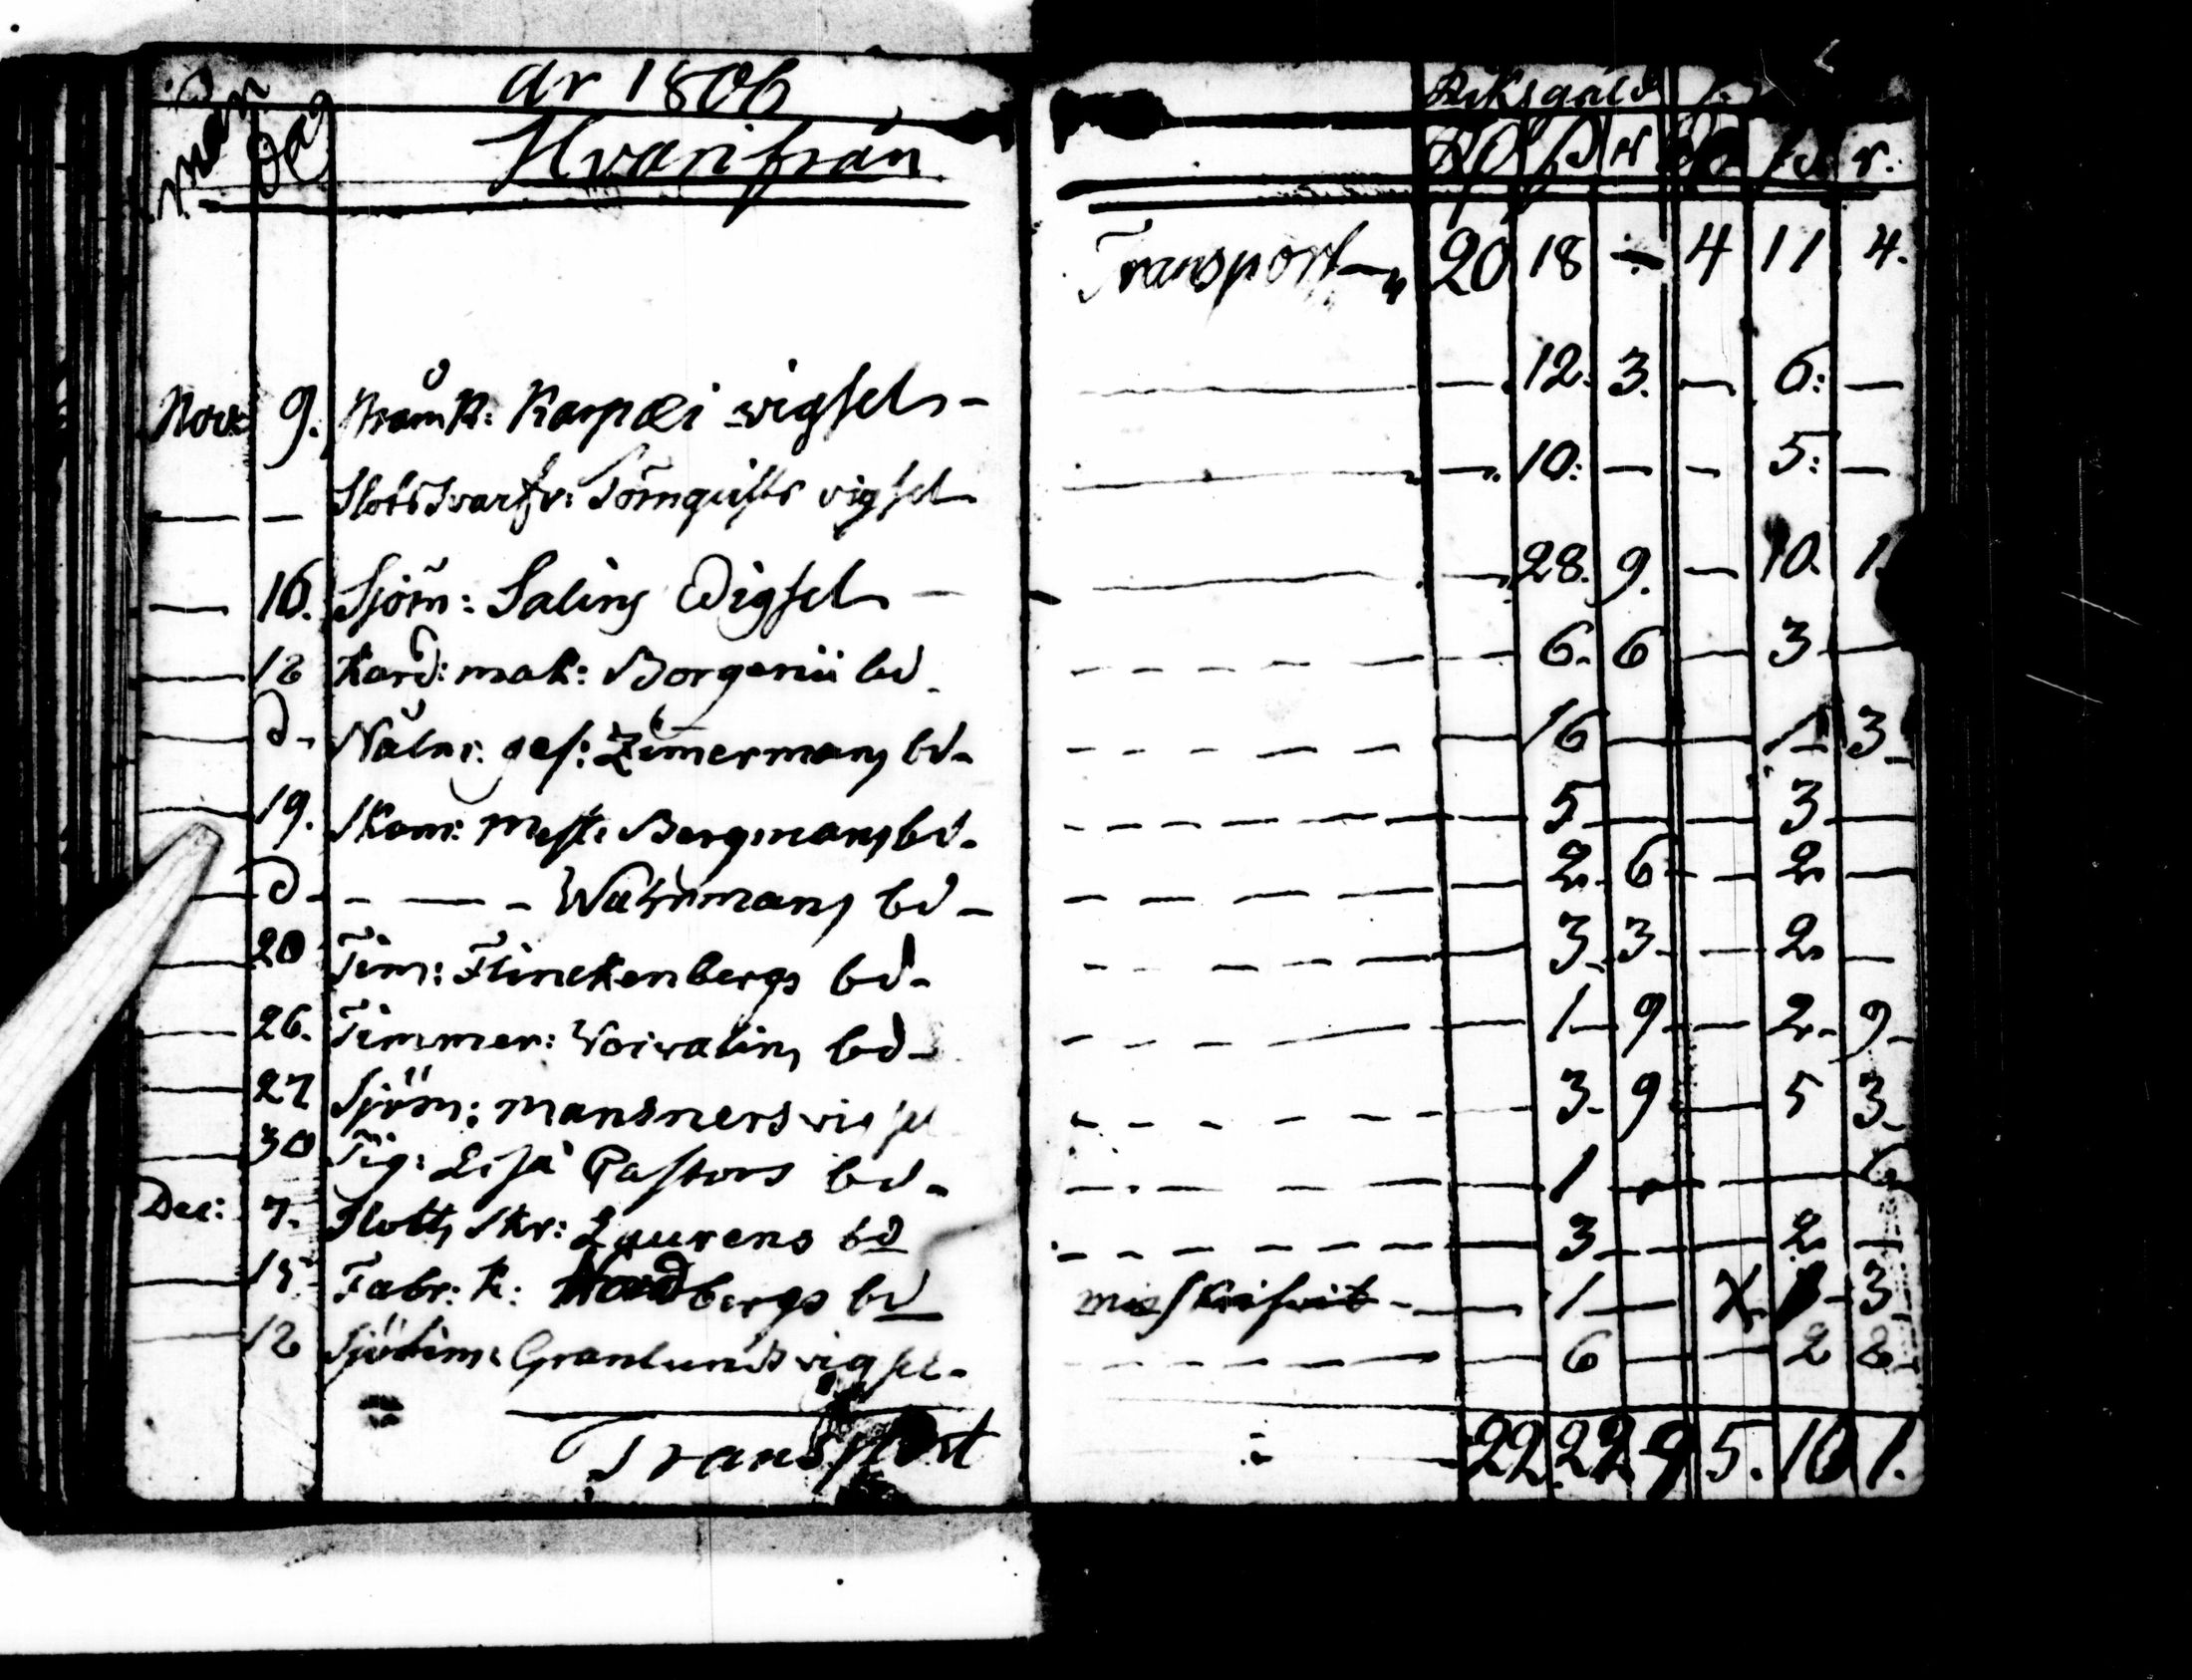 år 1806 Riksgäld
mån Dag Hvarifrån RD ß r ß r.
Transport 20 18 ÷ 4 11 4.
Nov: 9. Kräm K: Karpæi wigsel - — 12. 3. — 6: —
— — Slots Svarfv: Törnquists vigsel — 10: — — 5: —
— 16. Sjöm: Salins Wigsel — — 28. 9. — 10. 1.
— 12 Kard: mak: Borgenii bd. — 6. 6 — 3 —
— d. Nålm: ges: Zimermans bd. — 16 — 1 3
— 19. Skom: Mest: Bergmans bd. — 5 — 3 —
— d - - — - Wahrmans bd - — 2. 6 — 2 —
— 20 Tim: Flinckenbergs bd - — 3. 3 — 2 —
— 26. Timmer: Woivalins bd - — 1 9 — 2. 9
— 27 Sjöm: Mansners vigsel — 3. 9 — 5 3
— 30 Tig: Lisa Pastors bd - — 1 — — 6
Dec: 7. Slotts skr: Laurens bd — 3 — — 2 —
— Fabr: K: Nordbergs bd — 1 — 3
— 12 Sjötim: Granlunds vigsel. — 6 — — 2 8
Transport 22 22 9 5. 10 1.